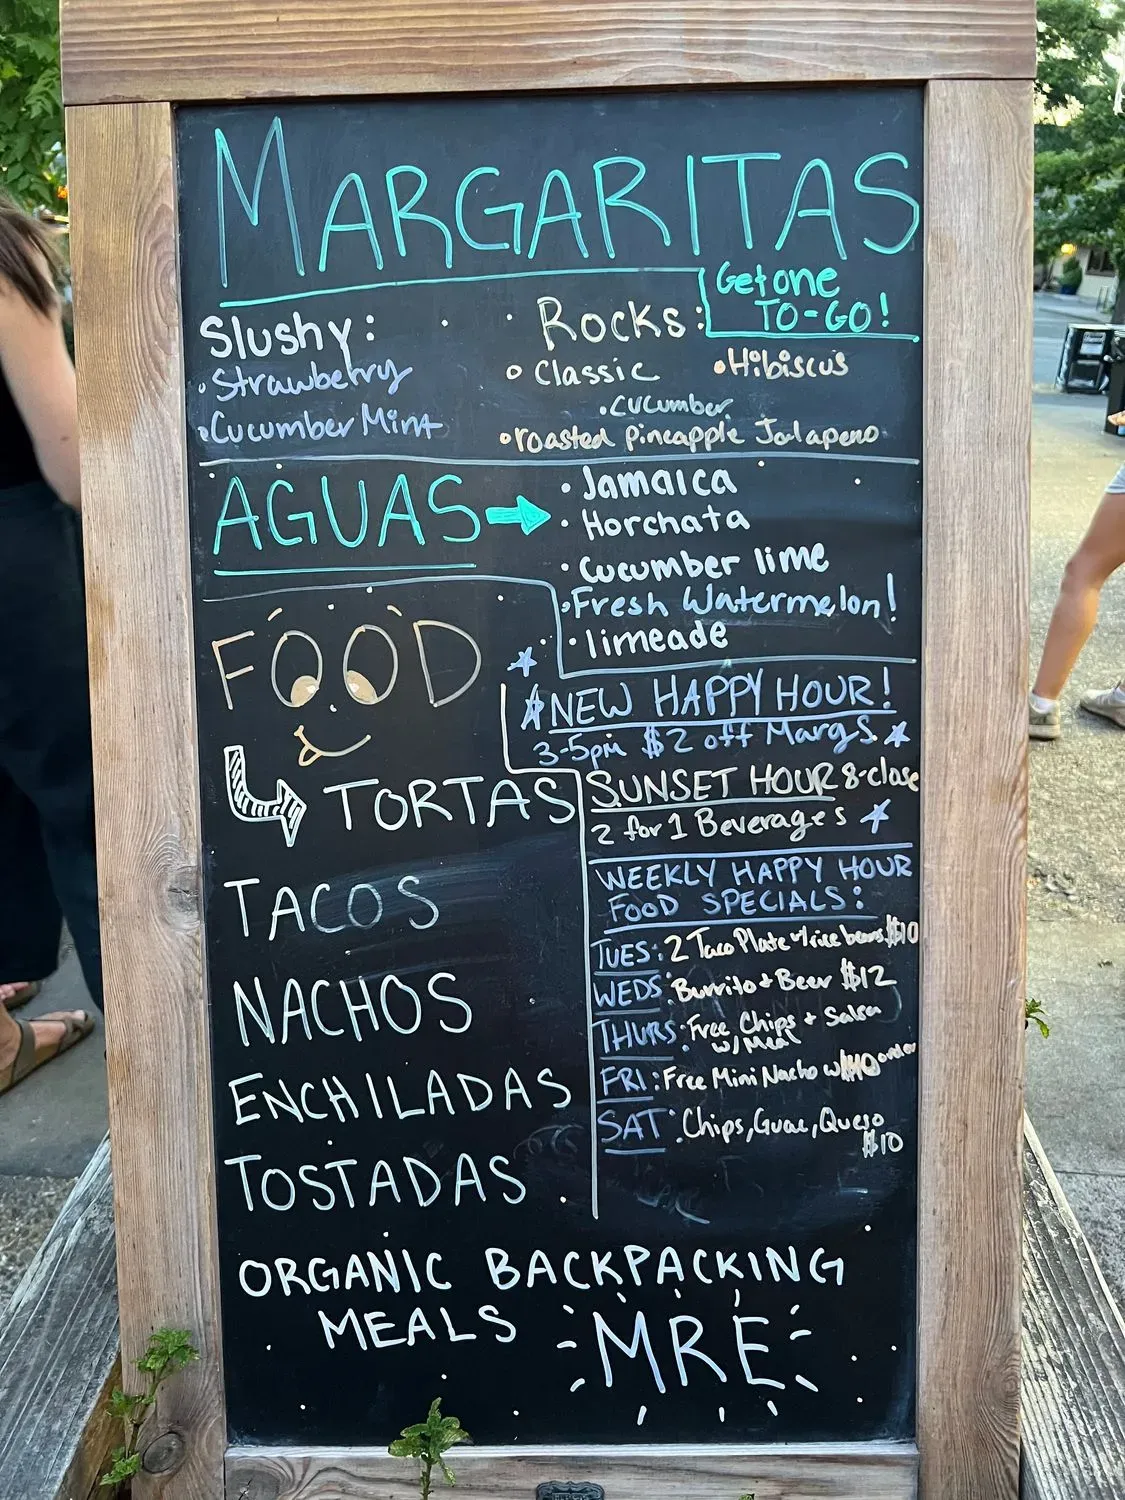 MARGARITAS
Get one
TO-GO!
Slushy:
• Strawberry
• Cucumber Mint
Rocks:
• Classic
• Hibiscus
• CUCumber
• roasted pineapple Jalapeno
AGUAS
• Jamaica
• Horchata
• Cucumber lime
• Fresh Watermelon!
• limeade
FOOD
TORTAS
TACOS
NACHOS
ENCHILADAS
TOSTADAS
NEW HAPPY HOUR!
3-5pm $2 off Margs
SUNSET HOUR 8-close
2 for 1 Beverages
WEEKLY HAPPY HOUR
FOOD SPECIALS:
TUES: 2 Taco Plate w/rice beans $10
WEDS: Burrito + Beer $12
THURS: Free Chips + Salsa
w/ Meal
FRI: Free Mini Nacho w/ order
SAT: Chips, Guac, Queso
$10
ORGANIC BACKPACKING
MEALS
MRE